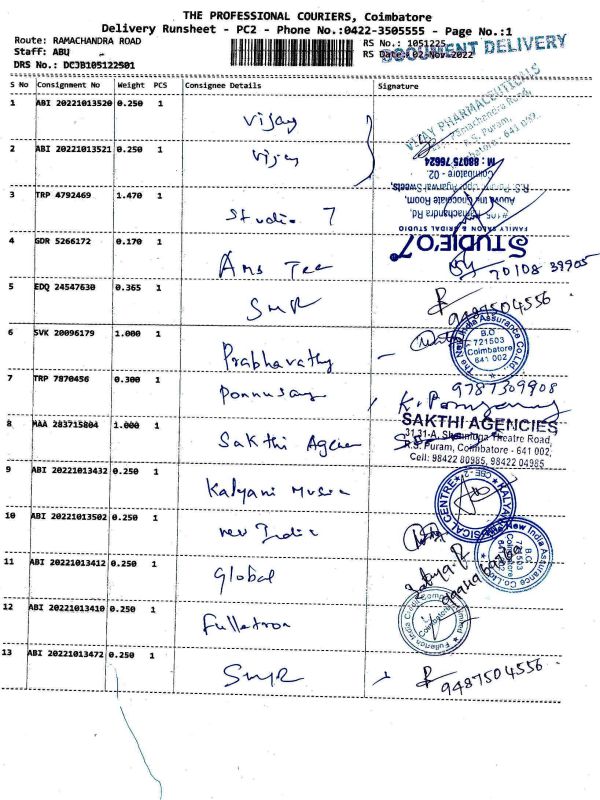 THE PROFESSIONAL COURIERS, Coimbatore
Delivery Runsheet - PC2 - Phone No.:0422-3505555 - Page No.:1
Route: RAMACHANDRA ROAD
Staff: ABU
DRS No.: DCJB105122501
RS No.: 1051225
RS Date: 02-Nov-2022
DOCUMENT DELIVERY
S No Consignment No Weight PCS Consignee Details Signature
1 ABI 20221013520 0.250 1 Vijay
VIJAY PHARMACEUTICALS
Ramachandra Road,
R.S. Puram,
2 ABI 20221013521 0.250 1 Vijay
M : 88075 76624
Coimbatore - 02
3 TRP 4792469 1.470 1 Studio 7
Ramachandra Rd,
FAMILY SALON & BRIDAL STUDIO
STUDIE'O7
4 GDR 5266172 0.170 1 Ams Tee
70108 39905
5 EDQ 24547630 0.365 1 SMR
9487504556
6 SVK 20096179 1.000 1 Prabharathy
The New India Assurance Co. Ltd.
B.O
721503
Coimbatore
641 002
7 TRP 7870456 0.300 1 Ponnusamy
9787309908
8 MAA 283715804 1.000 1 Sakthi Agen
SAKTHI AGENCIES
31,31-A, Shanmuga Theatre Road,
R.S. Puram, Coimbatore - 641 002,
Cell: 98422 80985, 98422 04985
9 ABI 20221013432 0.250 1 Kalyani Music
KALYANI MUSICAL CENTRE
CBE - 2
10 ABI 20221013502 0.250 1 new India
The New India Assurance Co. Ltd.
B.O.
721503
Coimbatore
641 002
11 ABI 20221013412 0.250 1 Global
12 ABI 20221013410 0.250 1 Fulletron
Fullerton India Credit Company Limited
Coimbatore
13 ABI 20221013472 0.250 1 SMR
9487504556